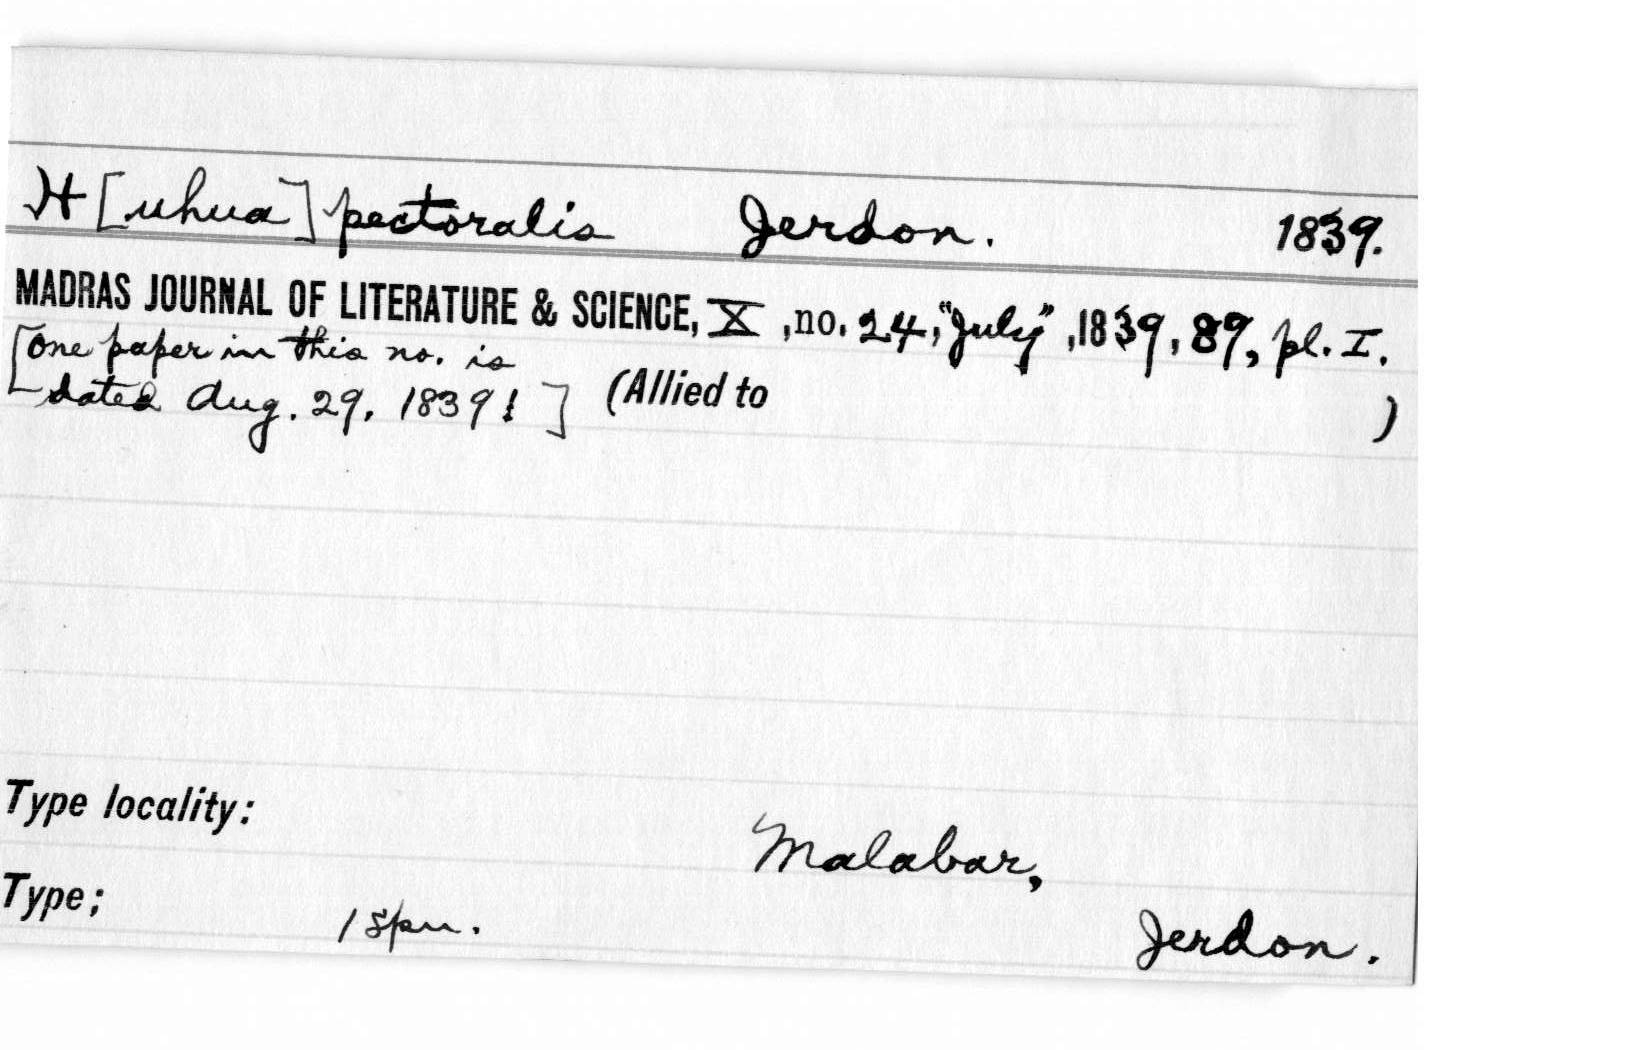 H[uhua] pectoralis Jerdon. 1839.
MADRAS JOURNAL OF LITERATURE & SCIENCE, X, no. 24, "July", 1839, 89, pl. I.
[One paper in this no. is
dated Aug. 29, 1839! ] (Allied to )
Type locality: Malabar,
Type; 1 spm. Jerdon.